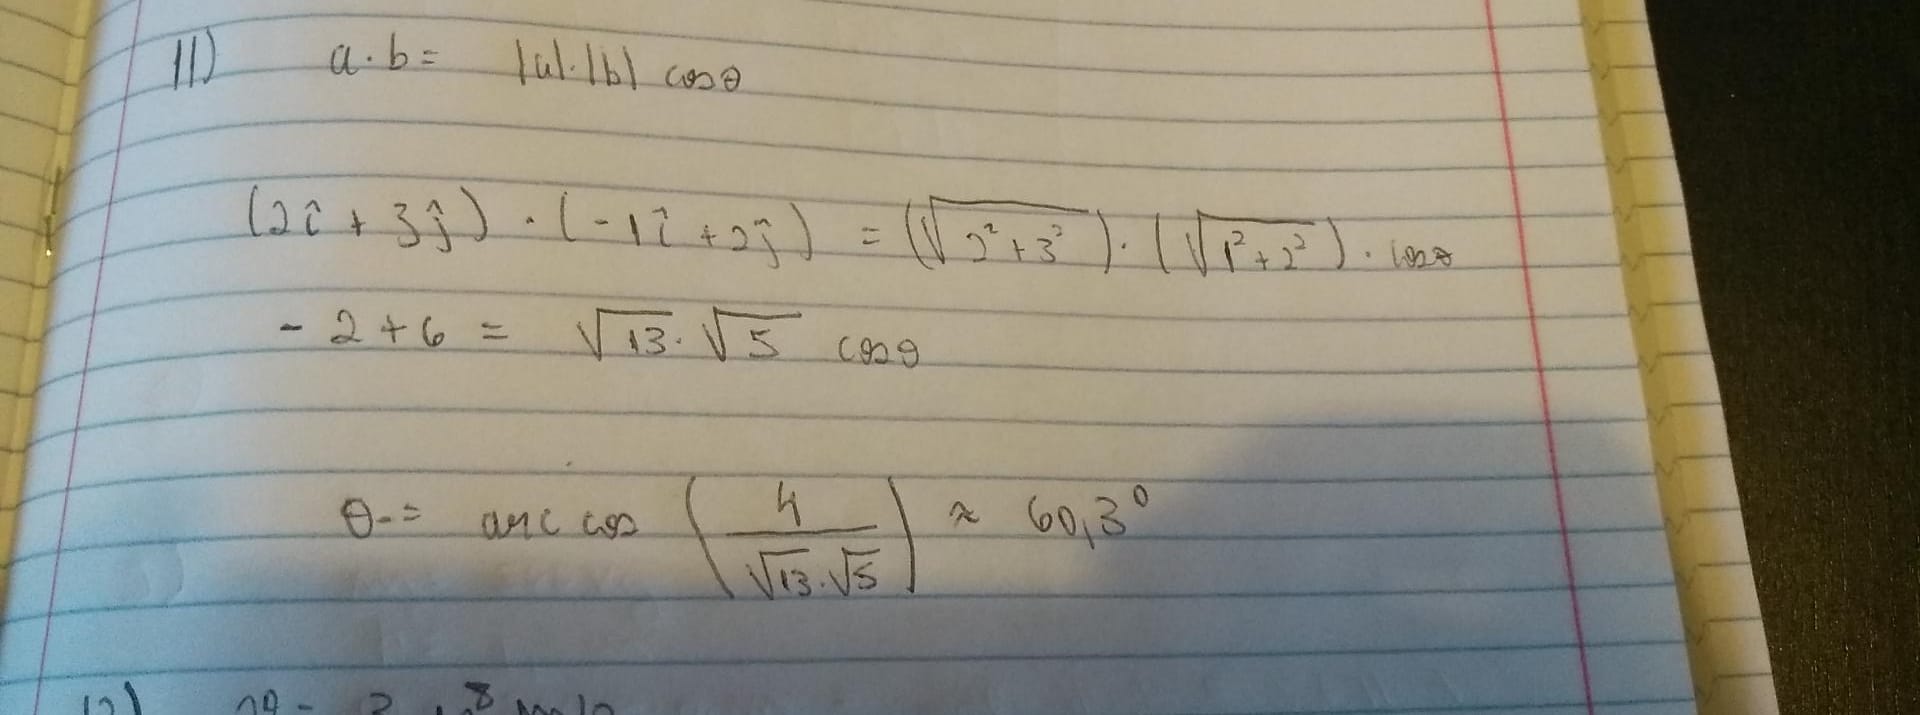 11) a · b = |a| · |b| cos θ
(2î + 3ĵ) · (-1î + 2ĵ) = (√(2² + 3²)) · (√(1² + 2²)) · cos θ
- 2 + 6 = √13 · √5 cos θ
θ = arc cos (4 / (√13 · √5)) ≈ 60,3°